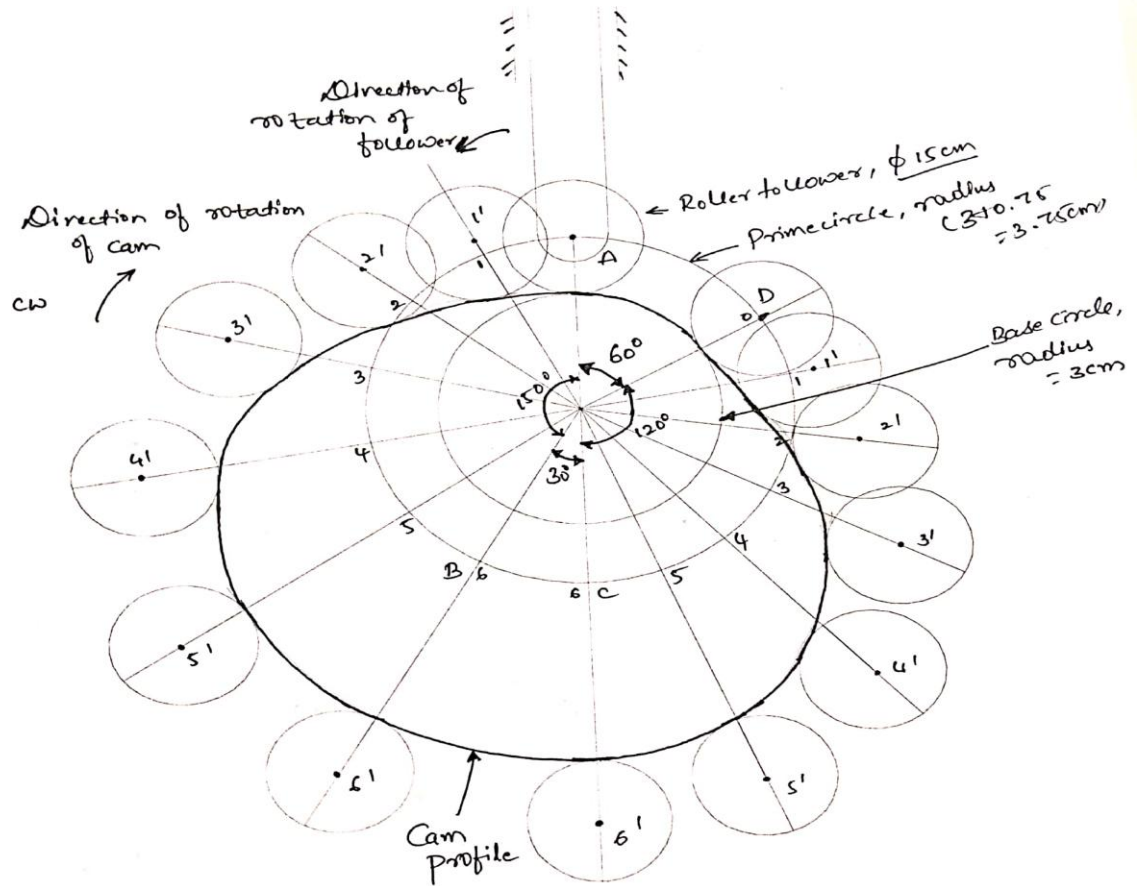 Direction of
rotation of
follower
Direction of rotation
of cam
CW
Roller follower, ϕ 15cm
Prime circle, radius
(3+0.75
=3.75cm)
Base circle,
radius
=3cm
A
D
0
1'
1
2'
2
3'
3
4'
4
5'
5
6'
B 6
6 C
1 1'
2 2'
3 3'
4 4'
5 5'
6'
60°
150°
120°
30°
Cam
profile